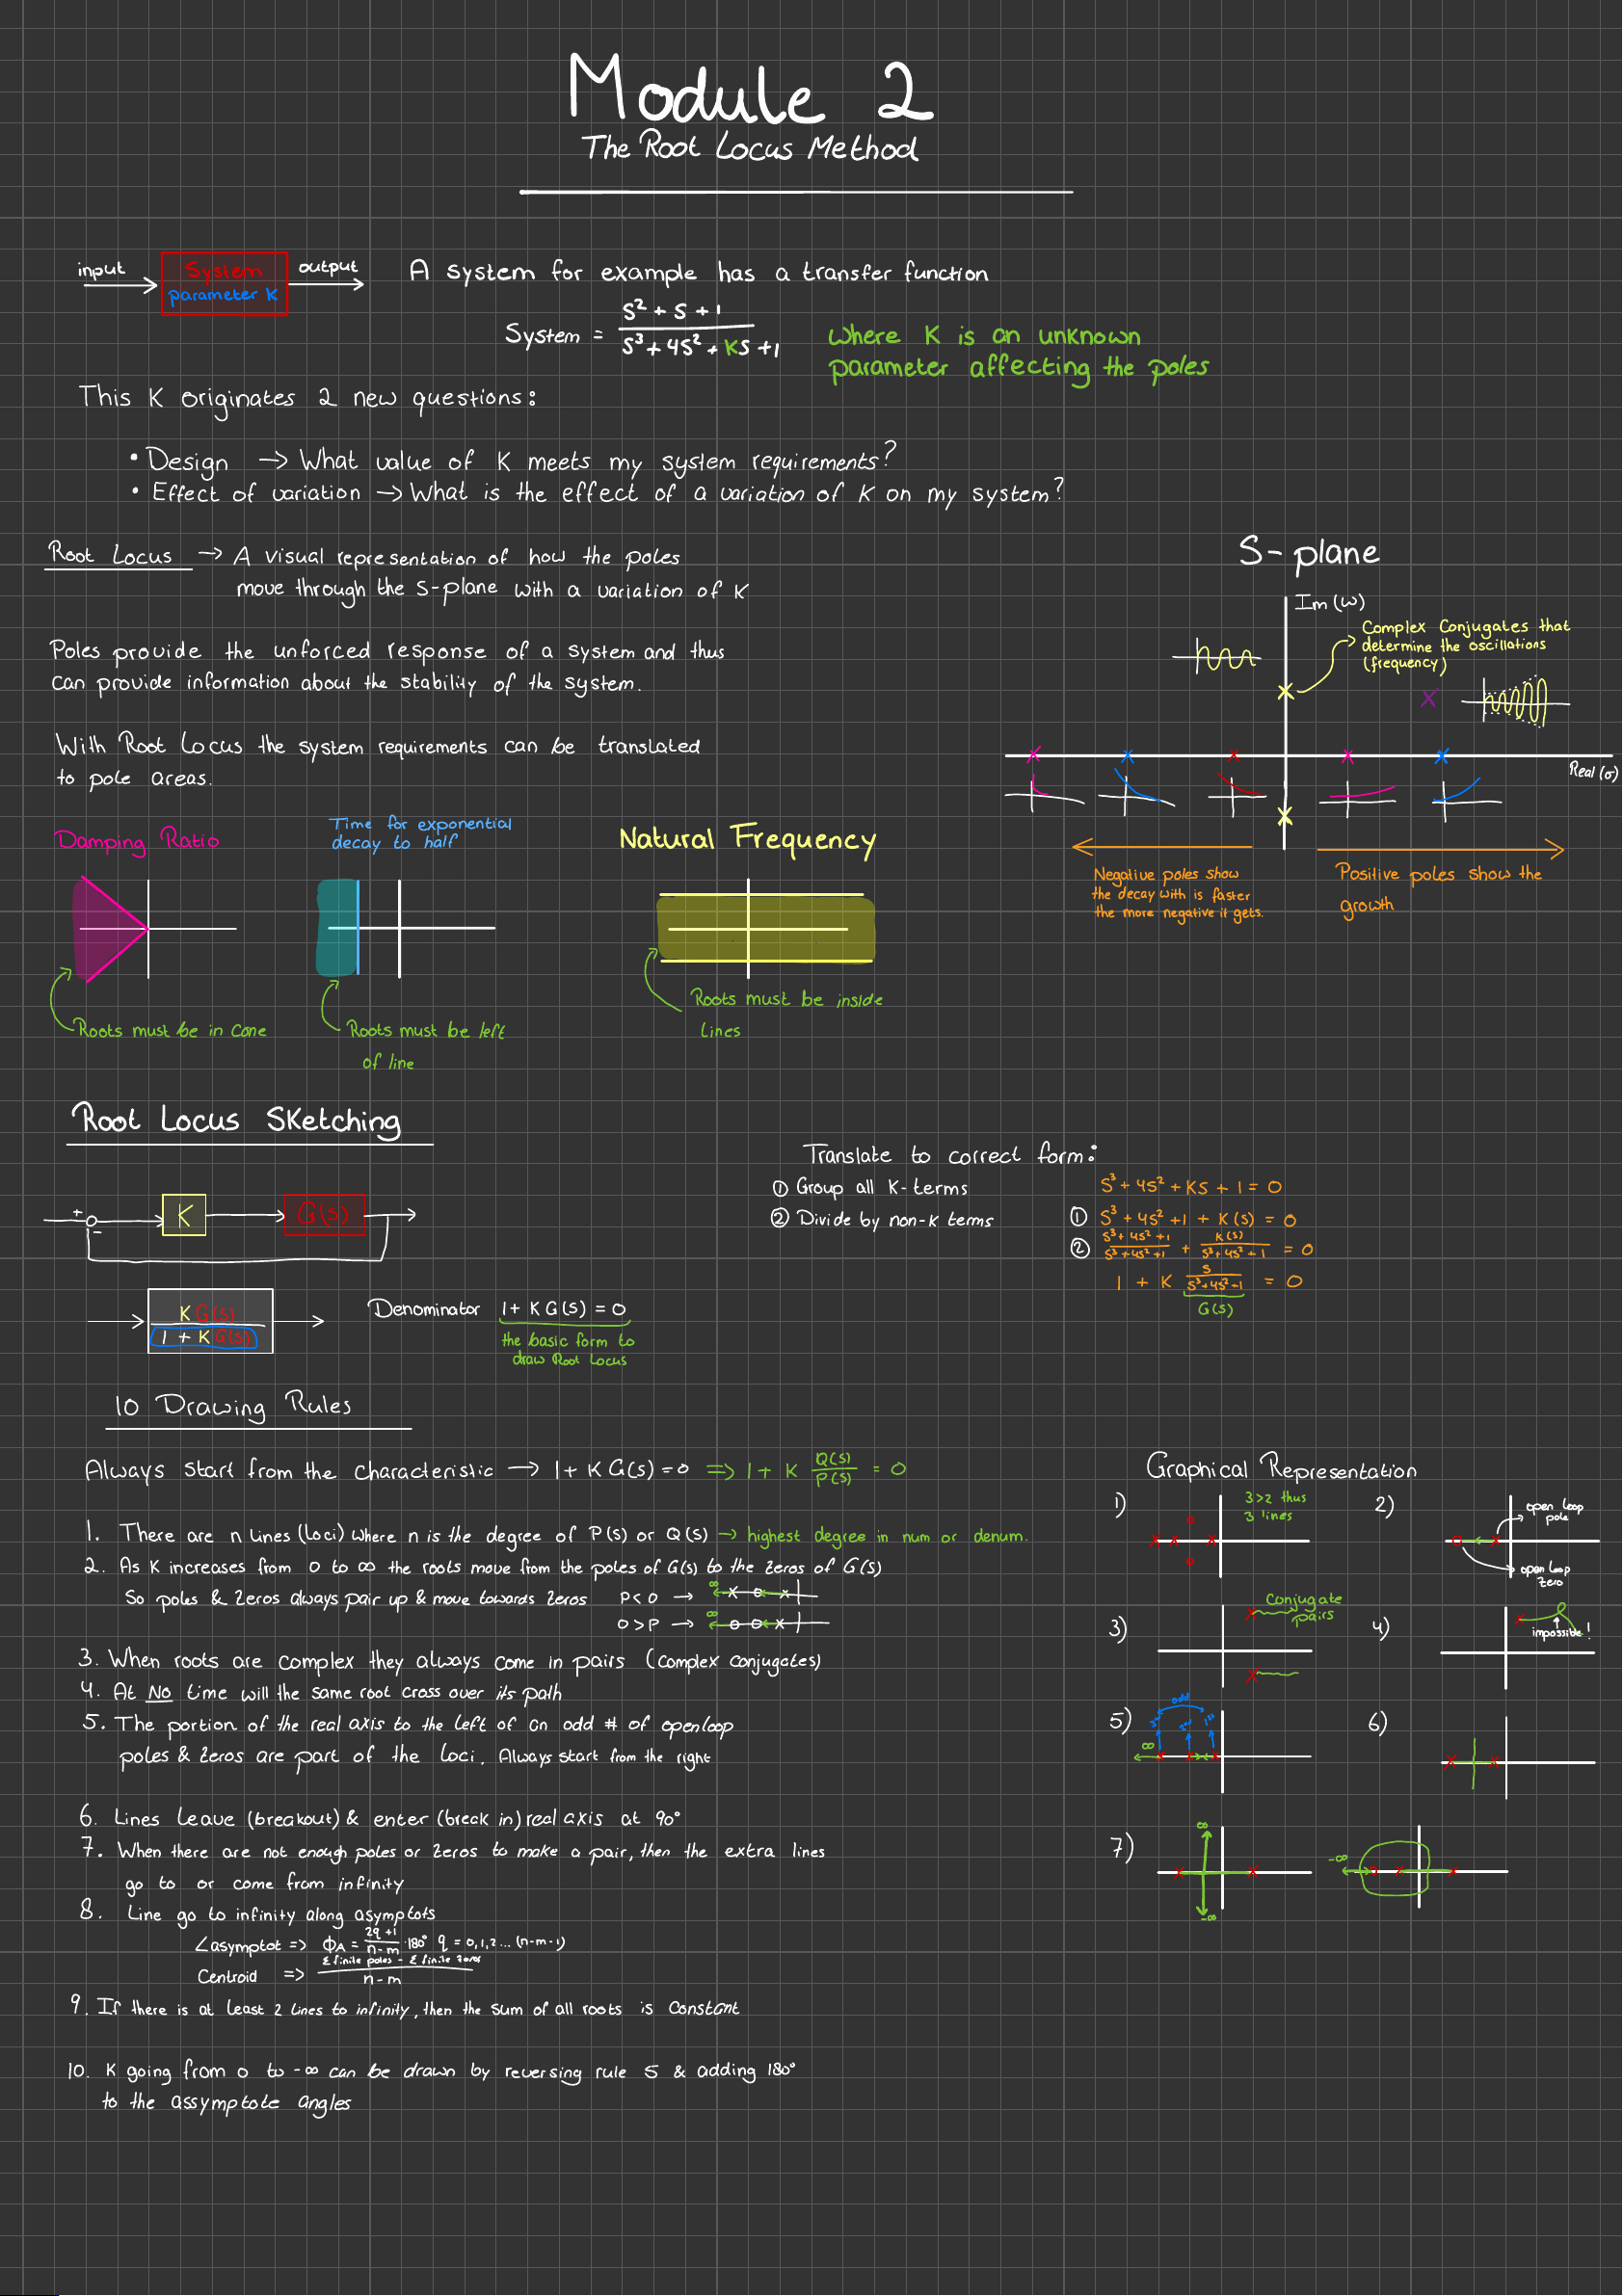 Module 2
The Root Locus Method
input
System
parameter K
output
A system for example has a transfer function
System = (S² + S + 1) / (S³ + 4S² + KS + 1)
Where K is an unknown
parameter affecting the poles
This K originates 2 new questions:
• Design → What value of K meets my system requirements?
• Effect of variation → What is the effect of a variation of K on my system?
Root Locus → A visual representation of how the poles
move through the S-plane with a variation of K
Poles provide the unforced response of a system and thus
can provide information about the stability of the system.
With Root Locus the system requirements can be translated
to pole areas.
S-plane
Im(ω)
Complex Conjugates that
determine the oscillations
(frequency)
Real(σ)
Negative poles show
the decay with is faster
the more negative it gets.
Positive poles show the
growth
Damping Ratio
Roots must be in Cone
Time for exponential
decay to half
Roots must be left
of line
Natural Frequency
Roots must be inside
lines
Root Locus Sketching
+
-
K
G(s)
K G(s)
1 + K G(s)
Denominator 1 + K G(s) = 0
the basic form to
draw Root Locus
Translate to correct form:
① Group all K-terms
② Divide by non-K terms
S³ + 4S² + KS + 1 = 0
① S³ + 4S² + 1 + K(s) = 0
② (S³ + 4S² + 1)/(S³ + 4S² + 1) + K(s)/(S³ + 4S² + 1) = 0
1 + K S/(S³ + 4S² + 1) = 0
G(s)
10 Drawing Rules
Always start from the characteristic → 1 + K G(s) = 0 ⇒ 1 + K Q(s)/P(s) = 0
1. There are n lines (loci) where n is the degree of P(s) or Q(s) → highest degree in num or denum.
2. As K increases from 0 to ∞ the roots move from the poles of G(s) to the zeros of G(s)
So poles & zeros always pair up & move towards zeros
P<0 → ∞
0>P → ∞
3. When roots are complex they always come in pairs (complex conjugates)
4. At NO time will the same root cross over its path
5. The portion of the real axis to the left of an odd # of openloop
poles & zeros are part of the loci. Always start from the right
6. Lines leave (breakout) & enter (break in) real axis at 90°
7. When there are not enough poles or zeros to make a pair, then the extra lines
go to or come from infinity
8. Line go to infinity along asymptots
∠asymptot => ΦA = (2q+1)/(n-m) ·180° q = 0,1,2...(n-m-1)
Centroid => (Σ finite poles - Σ finite zeros)/(n-m)
9. If there is at least 2 lines to infinity, then the sum of all roots is constant
10. K going from 0 to -∞ can be drawn by reversing rule 5 & adding 180°
to the assymptote angles
Graphical Representation
1)
3>2 thus
3 lines
2)
open loop
pole
open loop
zero
3)
Conjugate
pairs
4)
impossible!
5)
odd
3rd
2nd
1st
∞
6)
7)
∞
-∞
-∞